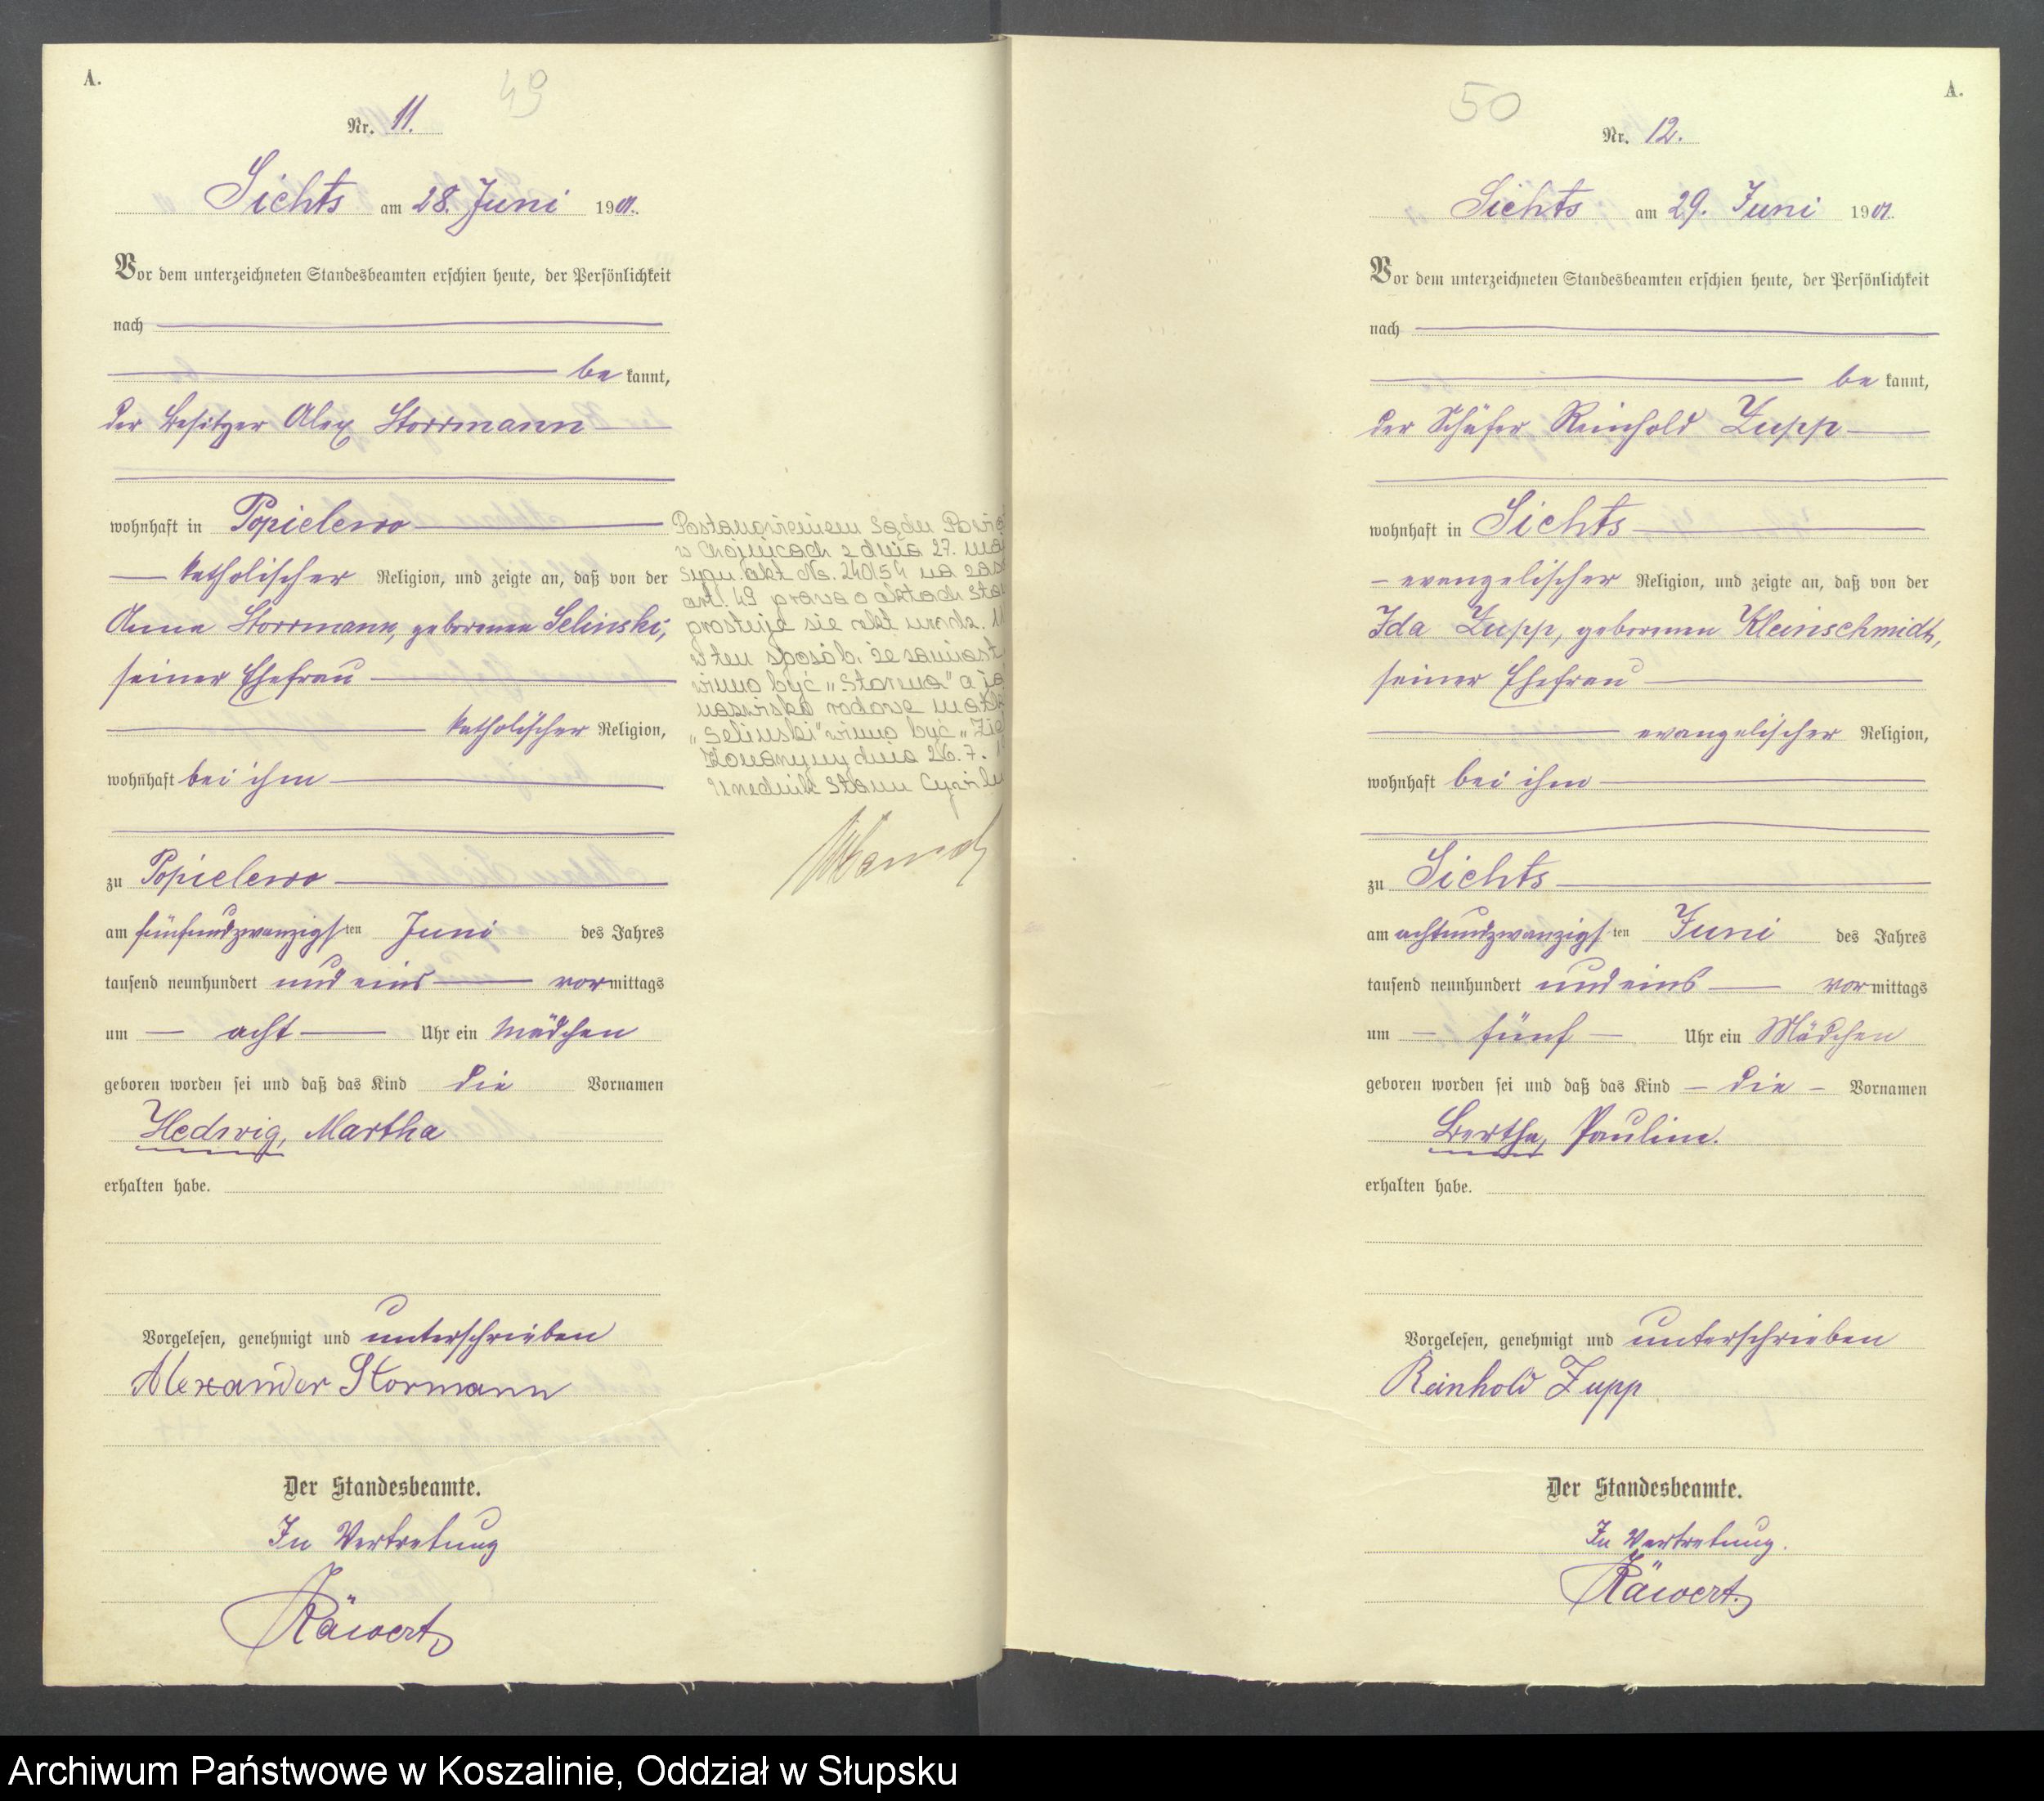 A.
49
Nr. 11.
Sichts am 28. Juni 1901.
Vor dem unterzeichneten Standesbeamten erschien heute, der Persönlichkeit
nach
be kannt,
der Besitzer Alex Storrmann
wohnhaft in Popielewo
katholischer Religion, und zeigte an, daß von der
Anna Storrmann, geborenen Selinski,
seiner Ehefrau
katholischer Religion,
wohnhaft bei ihm
zu Popielewo
am fünfundzwanzigsten Juni des Jahres
tausend neunhundert und eins vormittags
um acht Uhr ein Mädchen
geboren worden sei und daß das Kind die Vornamen
Hedwig, Martha
erhalten habe.
Vorgelesen, genehmigt und unterschrieben
Alexander Stormann
Der Standesbeamte.
In Vertretung
Räwert
Postanowieniem Sądu Powia
w Chojnicach z dnia 27. ma
sygn. akt No. 240/54 na zas
art. 49 prawa o aktach sta
prostuje się akt urodz. 11
w ten sposób, że zamiast
winno być „Storma" a ja
nazwisko rodowe matki
„Selinski" winno być „Zie
dnia 26. 7.
Urzędnik Stanu Cywiln
A.
50
Nr. 12.
Sichts am 29. Juni 1901.
Vor dem unterzeichneten Standesbeamten erschien heute, der Persönlichkeit
nach
be kannt,
der Schäfer Reinhold Zupp
wohnhaft in Sichts
evangelischer Religion, und zeigte an, daß von der
Ida Zupp, geborenen Kleinschmidt,
seiner Ehefrau
evangelischer Religion,
wohnhaft bei ihm
zu Sichts
am achtundzwanzigsten Juni des Jahres
tausend neunhundert und eins vormittags
um fünf Uhr ein Mädchen
geboren worden sei und daß das Kind die Vornamen
Bertha, Pauline.
erhalten habe.
Vorgelesen, genehmigt und unterschrieben
Reinhold Zupp
Der Standesbeamte.
In Vertretung.
Räwert.
Archiwum Państwowe w Koszalinie, Oddział w Słupsku